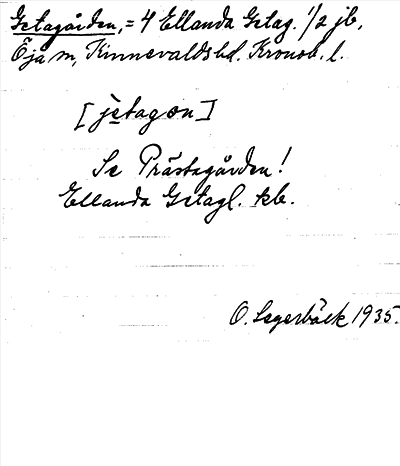 Getagården, = 4 Ellanda Getag. 1/2 jb,
Öja sn, Kinnevalds hd. Kronob. l.
[jetagon]
Se Prästagården!
Ellanda Getagl. kb.
O. Segerbäck 1935.